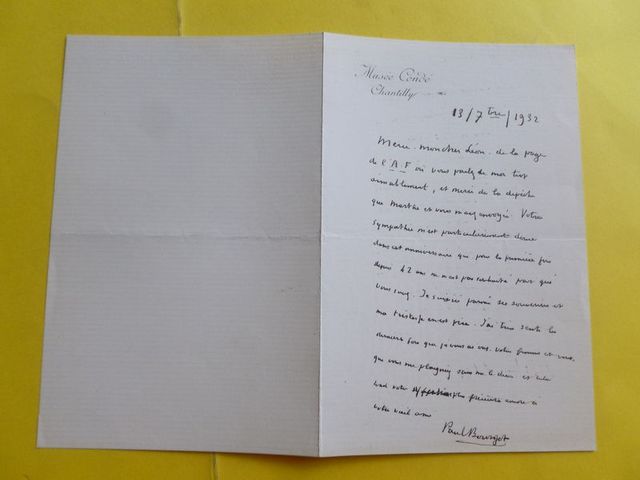 Musée Condé
Chantilly
13/7bre/1932
Merci, mon cher Léon, de la page
de l'A.F où vous parlez de moi tant
aimablement, et merci de la dépêche
que Marthe et vous m'avez envoyée. Votre
sympathie m'est particulièrement douce
dans cet anniversaire que pour la première fois
depuis 42 ans m'est pas souhaité par
vous Je parmi ses souvenirs et
ma tristesse est pire. J'ai très senti la
dernière fois que je vous ai vus, votre femme et vous,
que vous me plaigniez sans me le dire et cela
rend votre affection plus précieuse encore à
votre vieil ami
Paul Bourget